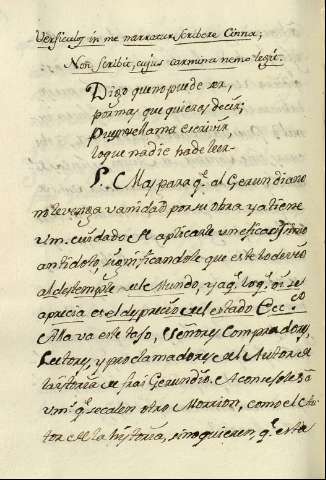 Versiculos in me narratur scribere Cinna;
Non scribit, cujus carmina nemo legit.
Digo que no puede ser,
por mas que quieras decir;
Pues no se llama escribir,
lo que nadie ha de leer.
P. Mas para q.e al Gerundiano
no le venga vanidad por su obra ya tiene
Vm. cuidado de aplicarle un eficacisimo
antidoto, significandole que este lo devera
al destemple del Mundo, y aq.e lo q.e
aprecia es el desprecio del estado Ecc.co
Alla va este tajo, Señores Compradores,
Lectores, y proclamadores del Autor de
la istoria de frai Gerundio. Aconsejo à
Vm.s q.e se calen otro Morrion, como el Au-
tor de la historia, sino quieren, q.e esta